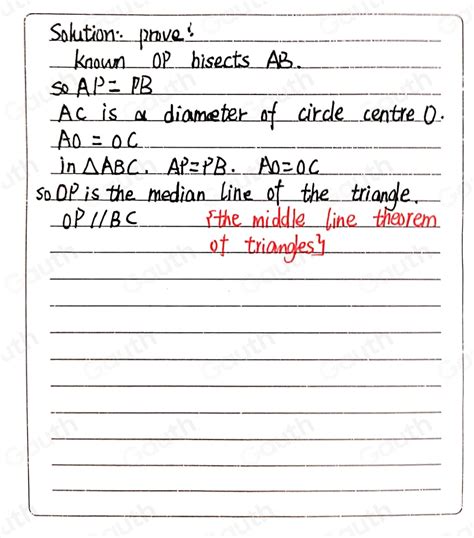 Solution: prove:
known OP bisects AB.
so AP = PB
AC is a diameter of circle centre O.
AO = OC
in △ABC. AP=PB. AO=OC
so OP is the median line of the triangle.
OP//BC {the middle line theorem
of triangles}
Gauth